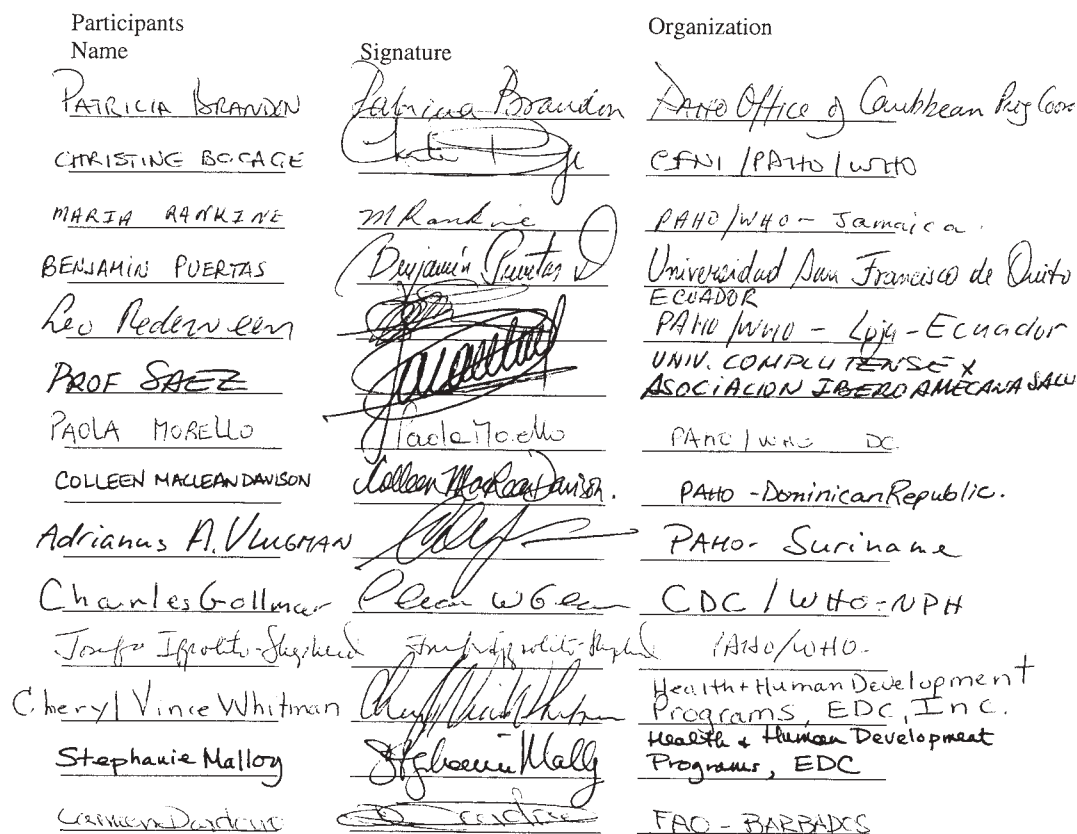 Participants
Name Signature Organization
PATRICIA BRANDON Patricia Brandon PAHO Office of Caribbean Prog Coor
CHRISTINE BOCAGE CFNI / PAHO / WHO
MARIA RANKINE M Rankine PAHO/WHO - Jamaica.
BENJAMIN PUERTAS Benjamín Puertas Universidad San Francisco de Quito
ECUADOR
Leo PAHO/WHO - Loja - Ecuador
PROF SAEZ UNIV. COMPLUTENSE Y
ASOCIACION IBEROAMECANA SALU
PAOLA MORELLO Paola Morello PAHO/WHO DC.
COLLEEN MACLEAN DAVISON Colleen MacLean Davison. PAHO - Dominican Republic.
Adrianus A. VLUGMAN PAHO - Suriname
Charles Gollmar CDC / WHO-NPH
Ippolito-Shepherd Ippolito-Shepherd PAHO/WHO-
Cheryl Vince Whitman Cheryl Vince Whitman Health + Human Development
Programs, EDC, Inc.
Stephanie Malloy Stephanie Malloy Health & Human Development
Programs, EDC
Carmen Dardano FAO - BARBADOS